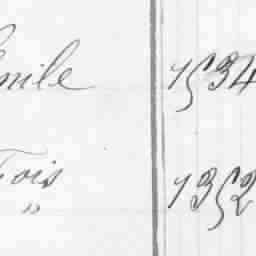 Emile 1534
Fois 1352
"